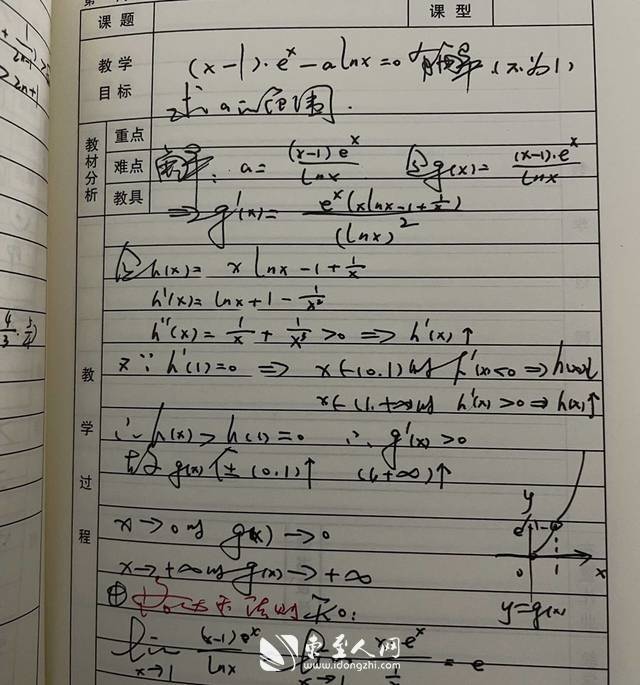 课题
课型
教学目标
(x-1)·e^x - a ln x = 0 有解 (x≠1)
求 a 范围.
教材分析
重点
难点
教具
a = (x-1)e^x / ln x
g(x) = (x-1)·e^x / ln x
⇒ g'(x) = e^x(x ln x - 1 + 1/x) / (ln x)^2
h(x) = x ln x - 1 + 1/x
h'(x) = ln x + 1 - 1/x^2
h''(x) = 1/x + 2/x^3 > 0 ⇒ h'(x)↑
又∵ h'(1)=0 ⇒ x∈(0,1)时 h'(x)<0 ⇒ h(x)↓
x∈(1,+∞)时 h'(x)>0 ⇒ h(x)↑
∴ h(x) > h(1) = 0 ∴ g'(x) > 0
g(x) 在 (0,1)↑ (1,+∞)↑
教学过程
x→0时 g(x)→0
x→+∞时 g(x)→+∞
由洛必达法则 知:
lim x→1 (x-1)e^x / ln x
x·e^x
= e
y
e
1
0
1
x
y=g(x)
1/2n-1
2n+1
4/3
东至人网
www.idongzhi.com